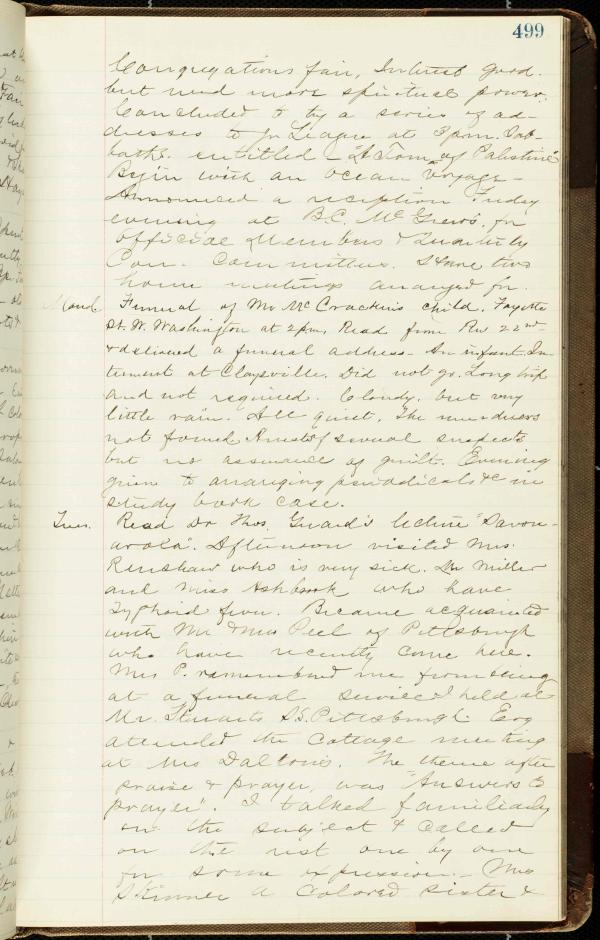 499
Congregations fair, Interest good.
but need more spiritual power.
Concluded to try a series of ad-
dresses to Jr League at 3 p.m. Sab-
baths. entitled - "A Tour of Palestine"
Begin with an ocean voyage -
Announced a reception Friday
evening at B.C. McGrew's. for
official Members & Quarterly
Con. Committees. Have two
home meetings arranged for.
Mond. Funeral of Mr McCracken's child. Fayette
St. W. Washington at 2 pm. Read from Rev 22nd
& delivered a funeral address - An infant. In-
terment at Claysville. Did not go. Long trip
and not required. Cloudy, but very
little rain. All quiet. The murderers
not found. Arrest of several suspects
but no assurance of guilt. Evening
given to arranging periodicals &c in
study book case.
Tues. Read Dr Thos. Guard's lecture "Savon-
arola". Afternoon visited Mrs.
Renshaw who is very sick. Mr Miller
and Miss Ashbrook who have
Typhoid fever. Became acquainted
with Mr & Mrs Peel of Pittsburgh
who have recently come here.
Mrs P. remembered me from being
at a funeral service I held at
Mr. Stuarts S.S. Pittsburgh. Evg
attended the Cottage meeting
at Mrs Dalton's. The theme after
praise & prayer, was "Answers to
prayer". I talked familiarly
on the subject & called
on the rest one by one
for some expression. - Mrs
Skinner a colored sister &